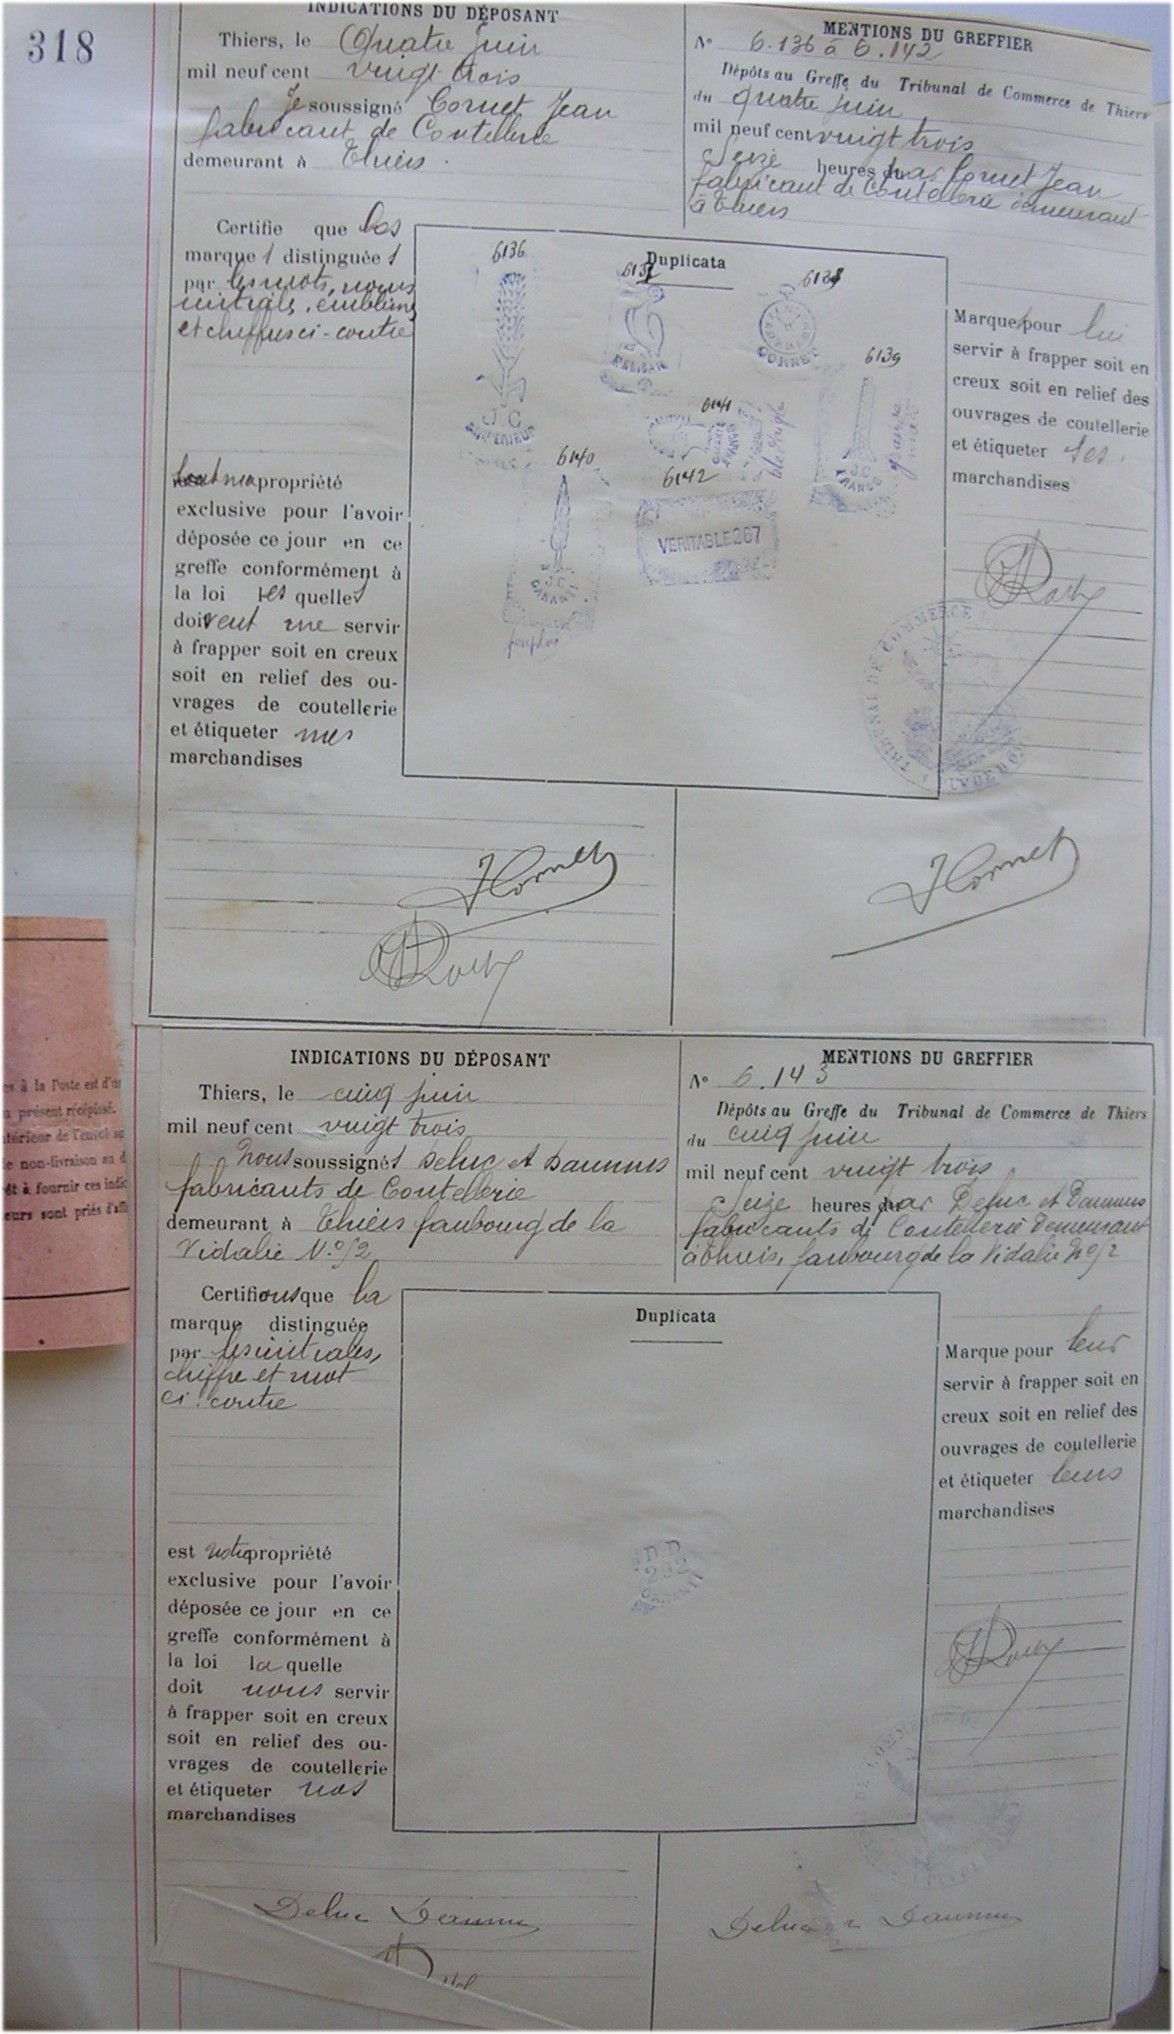 318
INDICATIONS DU DÉPOSANT
Thiers, le Quatre Juin
mil neuf cent vingt trois
Je soussigné Cornet Jean
fabricant de Coutellerie
demeurant à Thiers.
MENTIONS DU GREFFIER
N° 6.136 à 6.142
Dépôts au Greffe du Tribunal de Commerce de Thiers
du quatre juin
mil neuf cent vingt trois
Seize heures par Cornet Jean
fabricant de Coutellerie demeurant
à Thiers
Certifie que les
marques distinguées
par les mots, noms
initiales, emblèmes
et chiffres ci-contre
sont ma propriété
exclusive pour l'avoir
déposée ce jour en ce
greffe conformément à
la loi les quelles
doivent me servir
à frapper soit en creux
soit en relief des ou-
vrages de coutellerie
et étiqueter mes
marchandises
Duplicata
6136
J.C
SUPERIEUR
6137
PELICAN
6138
CORNET
6139
J.C
FRANCE
6140
J.C.
GARANTI
peuplier
6141
6142
VERITABLE 267
Marque pour lui
servir à frapper soit en
creux soit en relief des
ouvrages de coutellerie
et étiqueter ses
marchandises
TRIBUNAL DE COMMERCE
JCornet
JCornet
INDICATIONS DU DÉPOSANT
Thiers, le cinq juin
mil neuf cent vingt trois
Nous soussignés Deluc et Daumus
fabricants de Coutellerie
demeurant à Thiers faubourg de la
Vidalie N° 52
MENTIONS DU GREFFIER
N° 6.143
Dépôts au Greffe du Tribunal de Commerce de Thiers
du cinq juin
mil neuf cent vingt trois
Seize heures par Deluc et Daumus
fabricants de Coutellerie Demeurant
à Thiers, faubourg de la Vidalie N° 52
Certifions que la
marque distinguée
par les initiales,
chiffre et mot
ci-contre
est notre propriété
exclusive pour l'avoir
déposée ce jour en ce
greffe conformément à
la loi la quelle
doit nous servir
à frapper soit en creux
soit en relief des ou-
vrages de coutellerie
et étiqueter nos
marchandises
Duplicata
D.D
292
GARANTI
Marque pour leur
servir à frapper soit en
creux soit en relief des
ouvrages de coutellerie
et étiqueter leurs
marchandises
Deluc Daumus
Deluc Daumus
à la Poste est
présent récépissé.
de l'envoi
non-livraison au
à fournir ces
sont priés